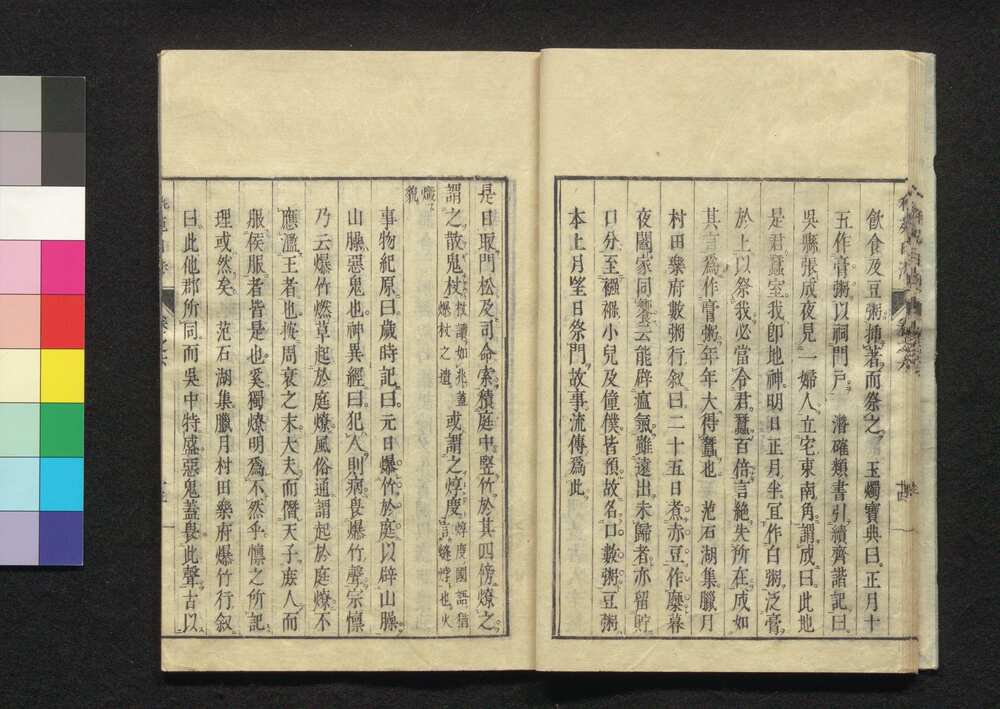 飲食及豆粥揷著而祭之 玉燭寶典曰正月十
五作膏粥以祠門戸 潛確類書引續齊諧記曰
吳縣張成夜見一婦人立宅東南角謂成曰此地
是君蠶室我卽地神明日正月半宜作白粥泛膏
於上以祭我必當令君蠶百倍言絶失所在成如
其言爲作膏粥年年大得蠶也 范石湖集臘月
村田樂府數粥行叙曰二十五日煮赤豆作糜暮
夜闔家同饗云能辟瘟氣雖遠出未歸者亦留貯
口分至襁褓小兒及僮僕皆預故名口數粥豆粥
本上月望日祭門故事流傳爲此
是日取門松及司命索積庭中竪竹於其四傍燎之
謂之散鬼杖杖讀如兆蓋爆杖之遺或謂之焞度焞度國語猶言鏠悖也火
熾貌
事物紀原曰歲時記曰元日爆竹於庭以辟山臊
山臊惡鬼也神異經曰犯人則病畏爆竹聲宗懍
乃云爆竹燃草起於庭燎風俗通謂起於庭燎不
應濫王者也按周衰之末大夫而僭天子庭人而
服侯服者皆是也奚獨燎明爲不然乎懍之所記
理或然矣 范石湖集臘月村田樂府爆竹行叙
曰此他郡所同而吳中特盛惡鬼蓋畏此聲古以